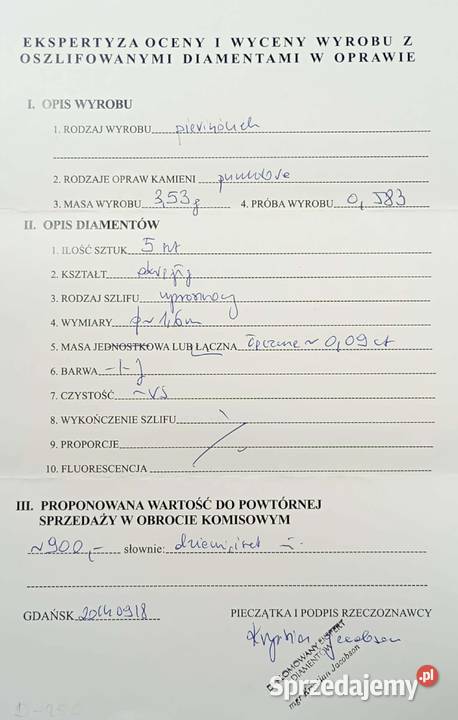 EKSPERTYZA OCENY I WYCENY WYROBU Z
OSZLIFOWANYMI DIAMENTAMI W OPRAWIE
I. OPIS WYROBU
1. RODZAJ WYROBU pierścionek
2. RODZAJE OPRAW KAMIENI punktowe
3. MASA WYROBU 3,53g 4. PRÓBA WYROBU 0,583
II. OPIS DIAMENTÓW
1. ILOŚĆ SZTUK 5 szt
2. KSZTAŁT okrągły
3. RODZAJ SZLIFU uproszczony
4. WYMIARY φ ~ 1,6m
5. MASA JEDNOSTKOWA LUB ŁĄCZNA łączna ~ 0,09 ct
6. BARWA ~I-J
7. CZYSTOŚĆ ~VS
8. WYKOŃCZENIE SZLIFU
9. PROPORCJE
10. FLUORESCENCJA
III. PROPONOWANA WARTOŚĆ DO POWTÓRNEJ
SPRZEDAŻY W OBROCIE KOMISOWYM
~900,- słownie: dziewięćset
GDAŃSK 20140918 PIECZĄTKA I PODPIS RZECZOZNAWCY
DYPLOMOWANY EKSPERT
DIAMENTÓW
mgr Krystian Jacobson
Sprzedajemy.pl